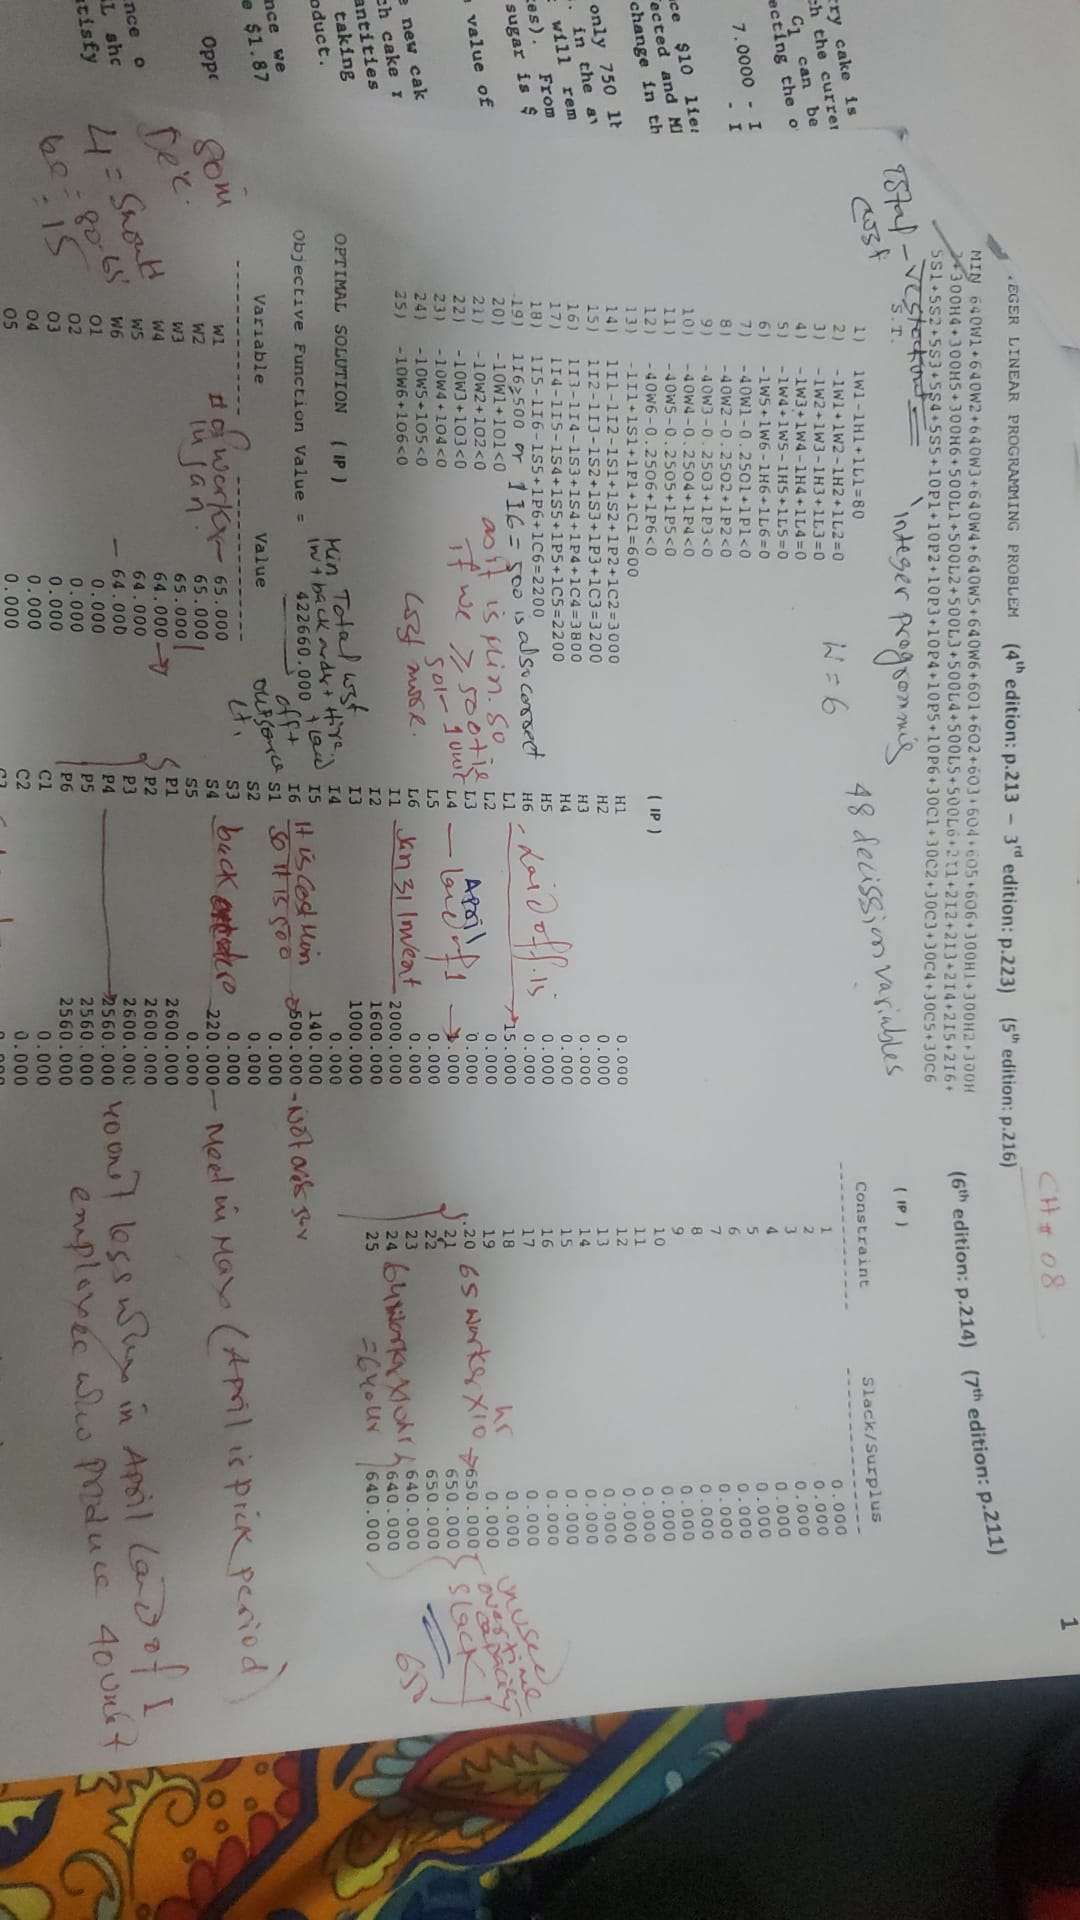 CH # 08
1
EGER LINEAR PROGRAMMING PROBLEM (4th edition: p.213 - 3rd edition: p.223) (5th edition: p.216) (6th edition: p.214) (7th edition: p.211)
MIN 640W1+640W2+640W3+640W4+640W5+640W6+6O1+6O2+6O3+6O4+6O5+6O6+300H1+300H2+300H
+300H4+300H5+300H6+500L1+500L2+500L3+500L4+500L5+500L6+2I1+2I2+2I3+2I4+2I5+2I6+
5S1+5S2+5S3+5S4+5S5+10P1+10P2+10P3+10P4+10P5+10P6+30C1+30C2+30C3+30C4+30C5+30C6
S.T.
Total
cost
Integer programming
48 decission variables
W = 6
1) 1W1-1H1+1L1=80
2) -1W1+1W2-1H2+1L2=0
3) -1W2+1W3-1H3+1L3=0
4) -1W3+1W4-1H4+1L4=0
5) -1W4+1W5-1H5+1L5=0
6) -1W5+1W6-1H6+1L6=0
7) -40W1-0.25O1+1P1<0
8) -40W2-0.25O2+1P2<0
9) -40W3-0.25O3+1P3<0
10) -40W4-0.25O4+1P4<0
11) -40W5-0.25O5+1P5<0
12) -40W6-0.25O6+1P6<0
13) -1I1+1S1+1P1+1C1=600
14) 1I1-1I2-1S1+1S2+1P2+1C2=3000
15) 1I2-1I3-1S2+1S3+1P3+1C3=3200
16) 1I3-1I4-1S3+1S4+1P4+1C4=3800
17) 1I4-1I5-1S4+1S5+1P5+1C5=2200
18) 1I5-1I6-1S5+1P6+1C6=2200
19) 1I6≥500 or 1I6=500 is also correct
20) -10W1+1O1<0
21) -10W2+1O2<0
22) -10W3+1O3<0
23) -10W4+1O4<0
24) -10W5+1O5<0
25) -10W6+1O6<0
as it is Min. so
if we ≥ 500
cost more.
OPTIMAL SOLUTION (IP)
Objective Function Value = 422660.000
Min Total cost
Variable Value
W1 65.000
W2 65.000
W3 65.000
W4 64.000
W5 64.000
W6 64.000
O1 0.000
O2 0.000
O3 0.000
O4 0.000
O5 0.000
# of worker
in Jan
(IP)
H1 0.000
H2 0.000
H3 0.000
H4 0.000
H5 0.000
H6 0.000
L1 15.000
L2 0.000
L3 0.000
L4 1.000
L5 0.000
L6 0.000
I1 2000.000
I2 1600.000
I3 1000.000
I4 0.000
I5 140.000
I6 500.000
S1 0.000
S2 0.000
S3 0.000
S4 220.000
S5 0.000
P1 2600.000
P2 2600.000
P3 2600.000
P4 2560.000
P5 2560.000
P6 2560.000
C1 0.000
C2 0.000
Laid off is
April
Jan 31 Invent
back
Meet in May (April is pick period)
40 unit less when in April laid of 1
employee who produce 40 unit
(IP)
Constraint Slack/Surplus
1 0.000
2 0.000
3 0.000
4 0.000
5 0.000
6 0.000
7 0.000
8 0.000
9 0.000
10 0.000
11 0.000
12 0.000
13 0.000
14 0.000
15 0.000
16 0.000
17 0.000
18 0.000
19 0.000
20 650.000
21 650.000
22 650.000
23 640.000
24 640.000
25 640.000
65 worker x 10 hr
= 640 hr
unused
overtime
capacity
slack
650
ry cake is
h the curre
G1 can be
ecting the o
7.0000 - I
ce $10 lie
ected and
change in th
only 750 lb
in the a
will rem
es). From
sugar is $
value of
new cak
ch cake
antities
taking
oduct.
nce we
e $1.87
Oppo
nce o
L sho
tisfy